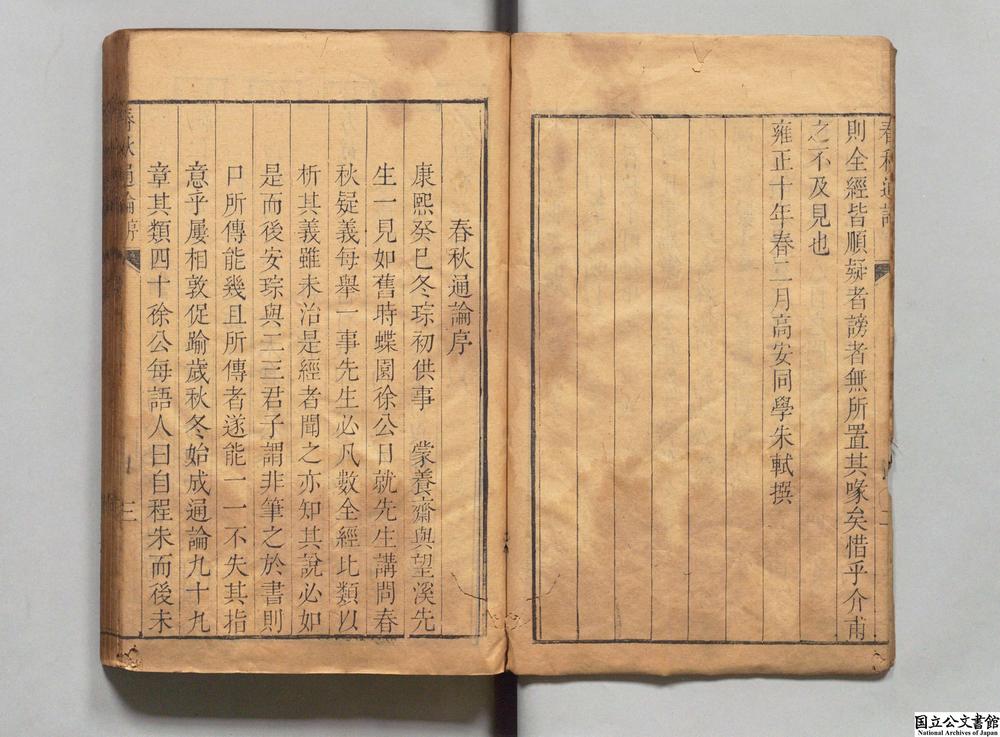 則全經皆順疑者謗者無所置其喙矣惜乎介甫
之不及見也
雍正十年春二月高安同學朱軾撰
春秋通論序
康熙癸巳冬琮初供事 蒙養齋與望溪先
生一見如舊時蝶園徐公日就先生講問春
秋疑義每舉一事先生必凡數全經比類以
析其義雖未治是經者聞之亦知其說必如
是而後安琮與二三君子謂非筆之於書則
口所傳能幾且所傳者遂能一一不失其指
意乎屢相敦促踰歲秋冬始成通論九十九
章其類四十徐公每語人曰自程朱而後未
春秋通論序
三
国立公文書館
National Archives of Japan